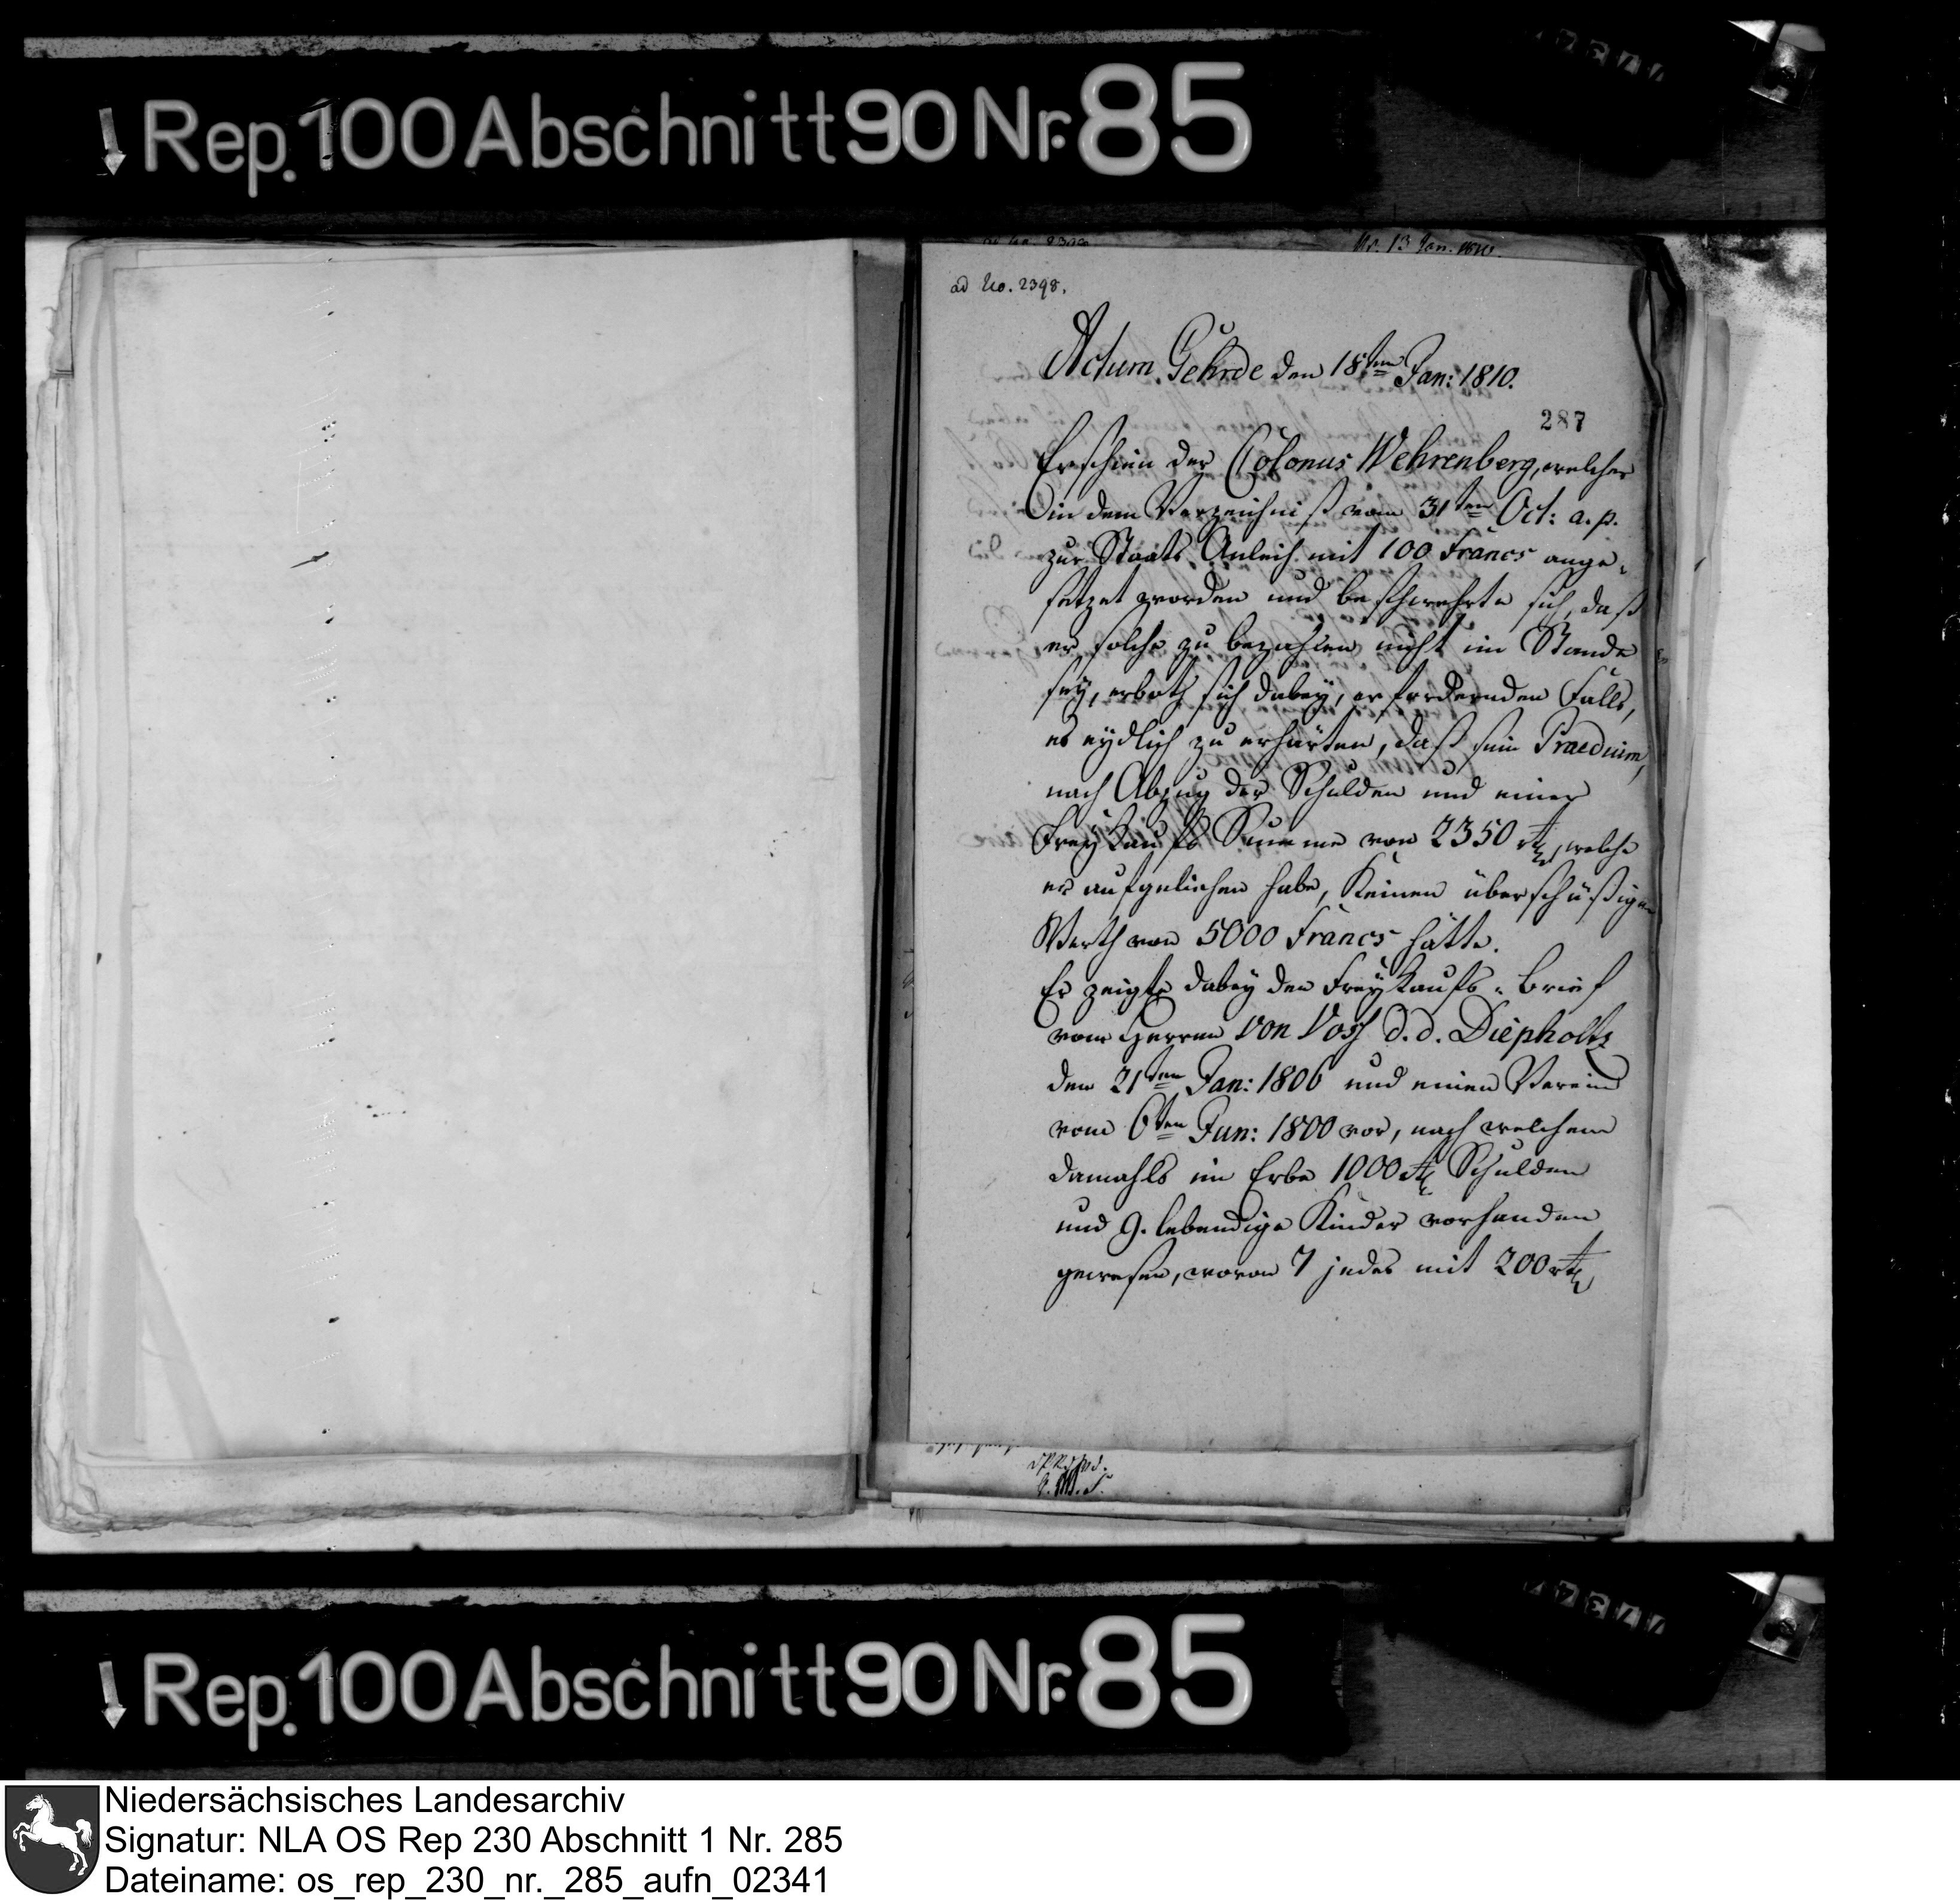 Rep. 100 Abschnitt 90 Nr. 85
ad No. 2398.
Actum Gehrde den 18ten Jan: 1810.
287
Erschien der Colonus Wehrenberg, welcher
in dem Verzeichniß vom 31ten Oct: a. p.
zur Staats Anleih mit 100 Francs ange-
setzet worden und beschwehrte sich, daß
er solche zu bezahlen nicht im Stande
sey, erboth sich dabey, erfordernden Falls,
es eydlich zu erhärten, daß sein Praedium,
nach Abzug der Schulden und einer
Freykaufs Summe von 2350 rtl, welche
er aufgeliehen habe, keinen überschüßigen
Werth von 5000 Francs hätte.
Er zeigte dabey den Freykaufs-Brief
vom Herren von Voss d. d. Diepholtz
den 21ten Jan: 1806 und einen Verein
vom 6ten Jun: 1800 vor, nach welchem
damahls im Erbe 1000 rtl Schulden
und 9. lebendige Kinder vorhanden
gewesen, wovon 7 jedes mit 200 rtl
Rep. 100 Abschnitt 90 Nr. 85
Niedersächsisches Landesarchiv
Signatur: NLA OS Rep 230 Abschnitt 1 Nr. 285
Dateiname: os_rep_230_nr._285_aufn_02341